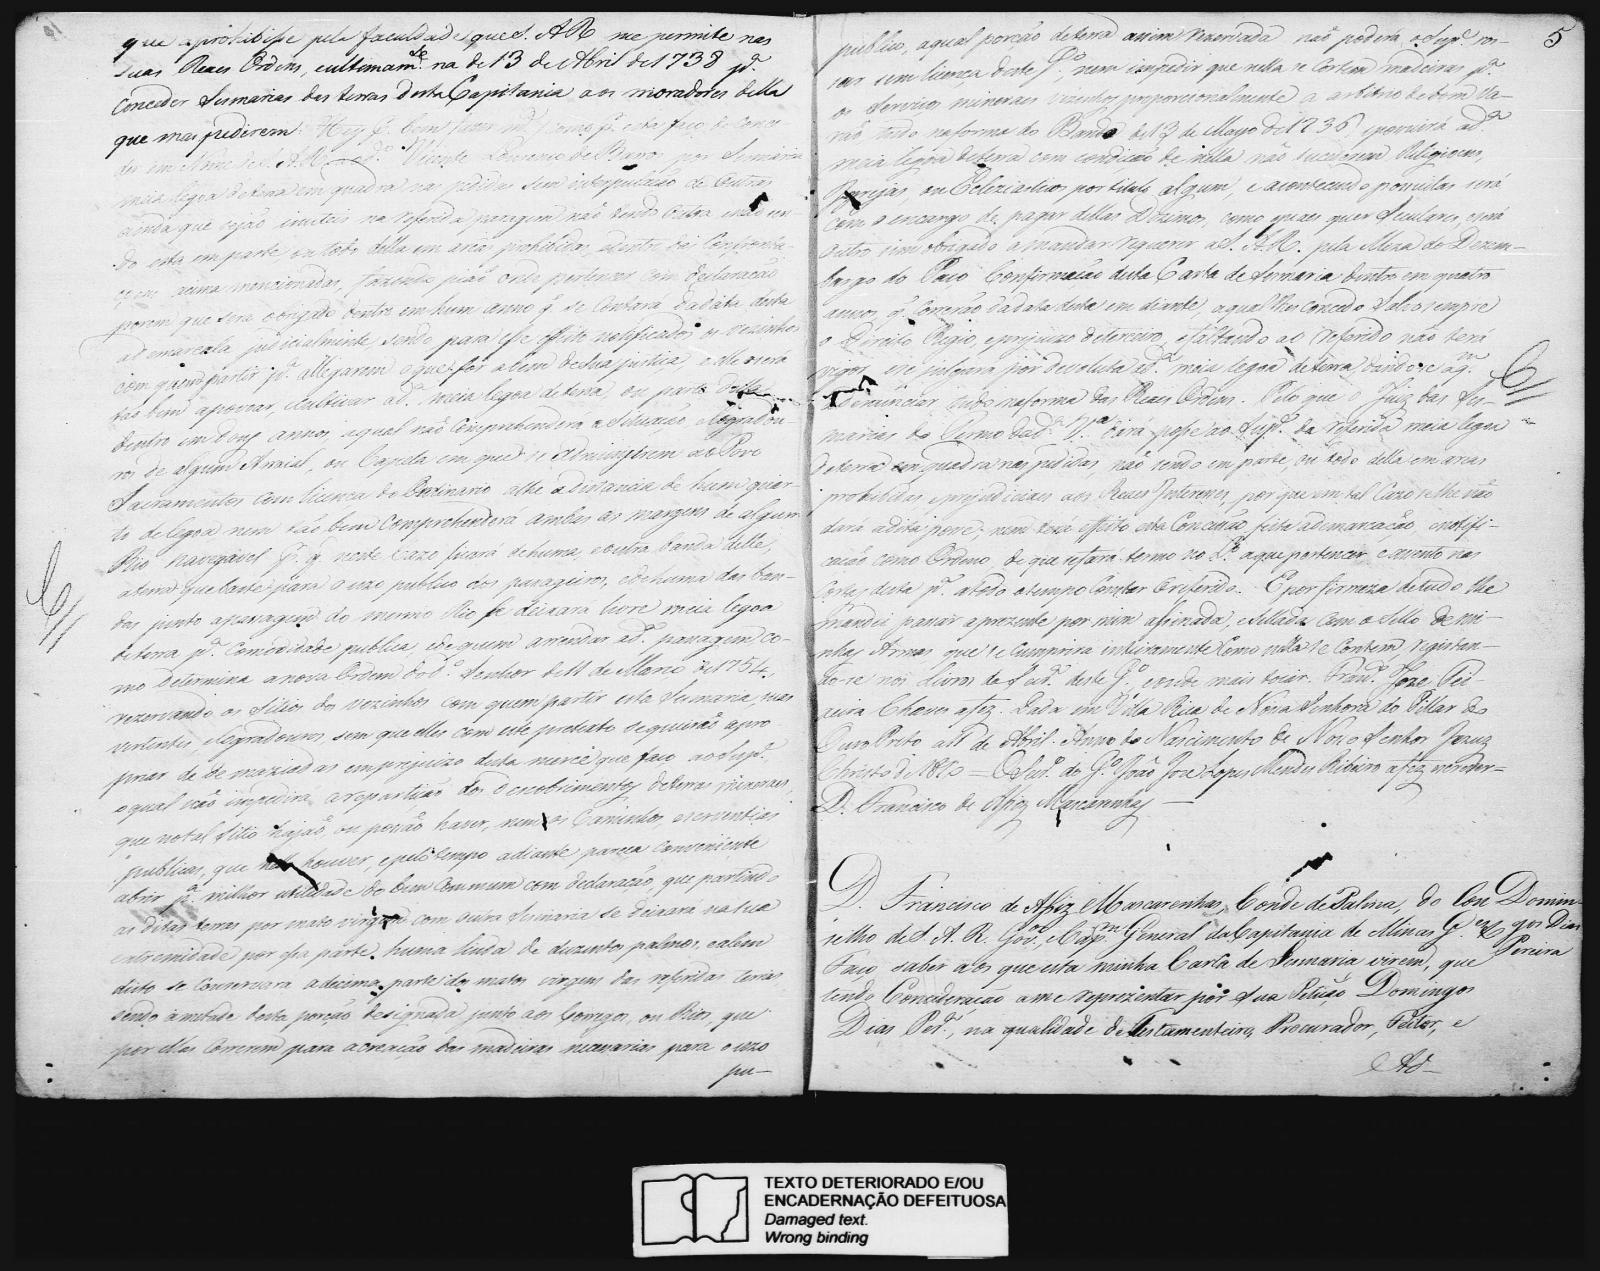 que aprohibisse pela faculdade que S. A R me permite nas
suas Reaes Ordens, eultimamte. na de 13 de Abril de 1738 pa.
conceder Sesmarias das terras desta Capitania aos moradores della
que mas pedirem: Hey p. bem fazer mce. (como p. esta faço) de conce-
der em Nome de S. A R. ao do. Vicente Lourenço de Barros por Sesmaria
meia legoa deterra em quadra nas pedidas sem interpolação de outras
ainda que sejão inuteis na referida paragem não tendo outra, e não sen-
do esta em parte ou todo della em areas prohibidas, e dentro das Confronta-
çoens acima mencionadas, fazendo pião onde pertencer com declaração
porem que será obrigado dentro em hum anno q. se contará dadata desta
ademarcala judicialmente sendo para esse effeito notificados os vezinhos
com quem partir pa. allegarem oquefor abem desua justiça, e elle será
tão bem apovoar, ecultivar ad. meia legoa deterra, ou parte della
dentro em dous annos, aqual não comprehenderá a situação, elogradou-
ros de algum Arraial, ou Capela em que se administrem ao Povo
Sacramentos com licença do Ordinario athe adistancia de hum quar-
to de legoa nem tão bem comprehenderá ambas as margens de algum
Rio navegavel p. q. neste cazo ficará dehuma, e outra banda delle,
aterra que baste para o uzo publico dos passageiros, e de huma das ban-
das junto apassagem do mesmo Rio se deixará livre meia legoa
de terra pa. comodidade publica, e de quem arrendar ada. passagem co-
mo determina anova Ordem do do. Senhor de 11 de Março de 1754,
rezervando os sitios dos vezinhos com quem partir esta Sesmaria, suas
vertentes, e logradouros sem que elles com este pretexto se queirão apro
priar de demaziadas emprejuizo desta mercê que faço ao Supe.
oqual não impedirá arepartição dos descobrimentos deterras mineraes,
que no tal sitio hajão, ou possão haver, nem os Caminhos, e serventias
publicas, que nelle houver, e pelo tempo adiante pareça conveniente
abrir pa. milhor utilidade do bem commum com declaração, que partindo
as ditas terras por mato virgem com outra Sesmaria se deixará na sua
extremidade por essa parte huma linha de duzentos palmos, e alem
disto se conservará adecima parte dos matos virgens das referidas terras
sendo ametade desta porção designada junto aos Corregos, ou Rios, que
por ellas correrem para acreação das madeiras necessarias para o uzo
pu-
5
publico, aqual porção deterra assim rezervada não poderá o Supe. ros-
sar sem licença deste Go. nem impedir que nella se cortem madeiras pa.
os Serviços mineraes vizinhos proporcionalmente a arbitrio de bom Va-
rão tudo naforma do Bando de 13 de Mayo de 1736, epossuirá ada.
meia legoa deterra com condição de nella não sucederem Religioens,
Igrejas, ou Ecleziasticos por titulo algum, e acontecendo possuilas será
com o encargo de pagar dellas Dizimos, como quaes quer Seculares, e será
outro sim obrigado a mandar requerer a S. A R. pela Meza do Dezem-
bargo do Paço Confirmação desta Carta de Sesmaria dentro em quatro
annos, q. correrão dadata desta em diante, aqual lhe concedo salvo sempre
o Direito Regio, e prejuizo deterceiro, e faltando ao referido não terá
vigor, e se julgará por devoluta ada. meia legoa deterra dando-se aqm.
adenunciar, tudo naforma das Reaes Ordens. Pelo que o Juiz das Ses-
marias do Termo dada. Va. dará posse ao Supe. da referida meia legoa
deterra em quadra nas pedidas, não sendo em parte, ou todo della em areas
prohibidas eprejudiciaes aos Reaes Interesses, por que em tal Cazo selhe não
dará adita posse; nem terá effeito esta Concessão, feita ademarcação, enotifi-
cação como Ordeno, de que sefará termo no Lo. aque pertencer, e assento nas
Costas desta pa. atodo otempo constar oreferido. E por firmeza detudo lhe
mandei passar aprezente por mim assinada, e Sellada com o Sello de mi-
nhas Armas que se cumprirá inteiramente como nella se contem registan-
do-se nos Livros da Secra. deste Go., e onde mais tocar. Franco. Joze Tei-
xeira Chaves afez. Dada em Villa Rica de Nossa Senhora do Pillar do
Ouro Preto a 11 de Abril. Anno do Nascimento de Nosso Senhor Jezuz
Christo de 1810 = O Secro. do Go. João Joze Lopes Mendes Ribeiro afez escrever -
D. Francisco de Assiz Mascarenhas
D. Francisco de Assiz Mascarenhas, Conde de Palma, do Con
selho de S. A. R. Govor. e Capm. General da Capitania de Minas Geraes &
Faço saber aos que esta minha Carta de Sesmaria virem, que
tendo Consideração ame reprezentar por sua Petição Domingos
Dias Pera., na qualidade de Testamenteiro, Procurador, Feitor, e
Ad-
Domin-
gos Dias
Pereira
TEXTO DETERIORADO E/OU
ENCADERNAÇÃO DEFEITUOSA
Damaged text.
Wrong binding